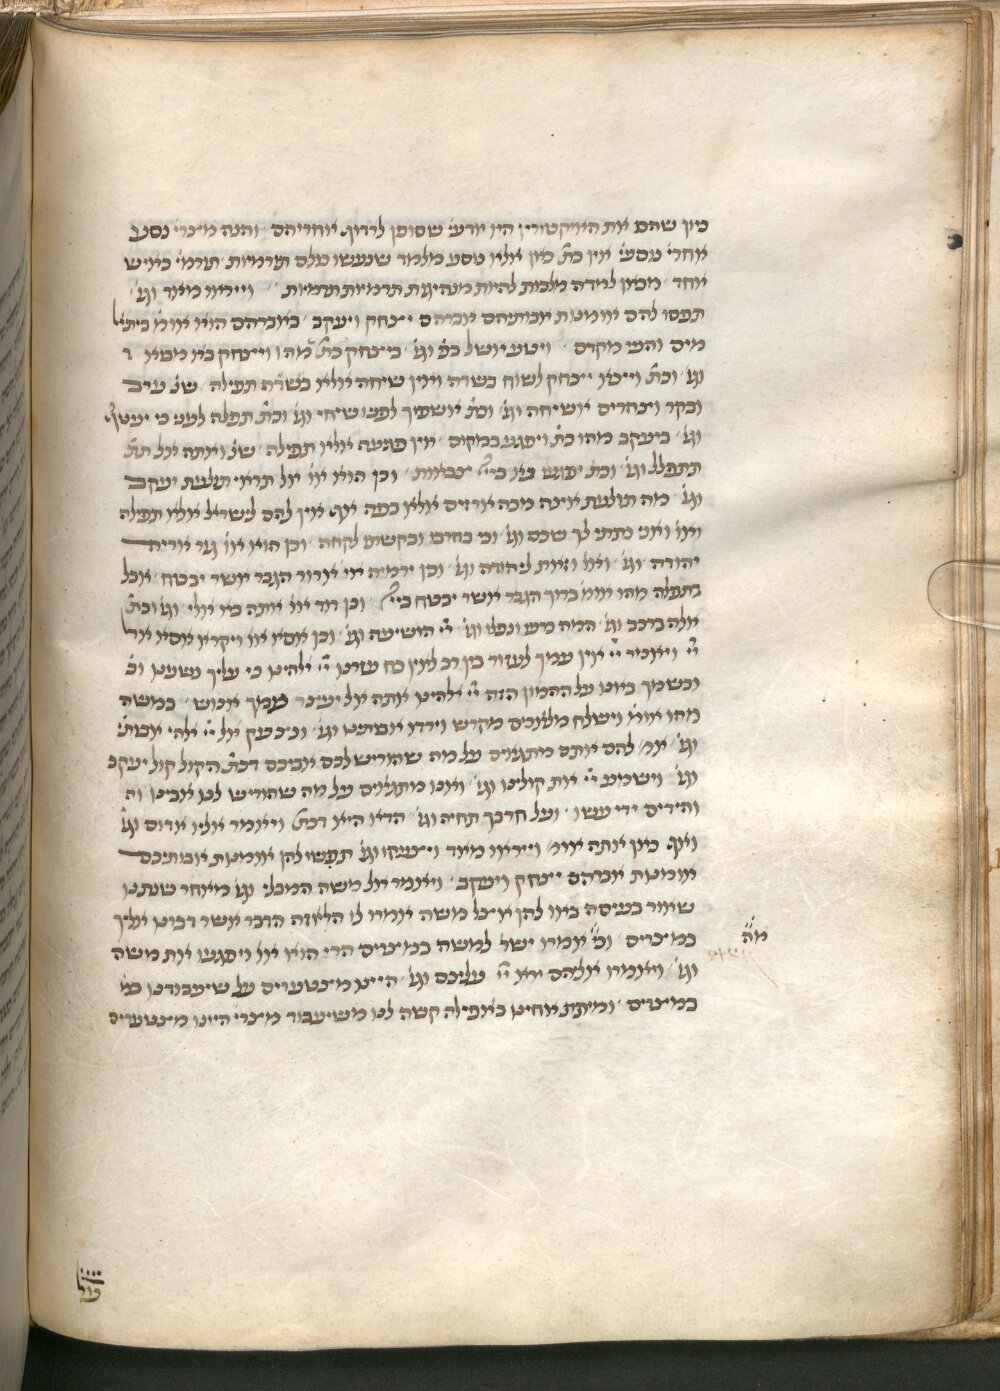 כיון שהם את האיקטורין היו יודעי׳ שסופן לרדוף אחריהם והנה מצרי׳ נסע
אחרי׳ נוסעי׳ אין כת׳ כאן אלא נוסע מלמד שנעשו כולם תורמיות תורמי׳ כאיש
אחד מכאן למדה מלכות להיות מנהיגת תרמיות תרמיות וייראו מאוד וגו׳
תפסו להם אומנות אבותיהם אברהם יצחק ויעקב באברהם הוא אומ׳ ביתאל
מים והעי מקדם ויטע אשל בב׳ וגו׳ ביצחק כת׳ מהו ויצחק בא מבוא ר׳
וגו׳ וכת׳ ויצא יצחק לשוח בשדה ואין שיחה אלא בשדה תפילה שנ׳ ערב
ובקר וצהרים אשיחה וגו׳ וכת׳ אשפוך לפניו שיחי וגו׳ וכת׳ תפלה לעני כי יעטוף
וגו׳ ביעקב מהו כת׳ ויפגע במקום אין פגיעה אלא תפילה שנ׳ ואתה אל תת׳
תתפלל וגו׳ וכת׳ יפגעו נא ביי׳ צבאות וכן הוא או׳ אל תראי תולעת יעקב
וגו׳ מה תולעת אינה מכה ארזים אלא בפה אף אין להם לישראל אלא תפילה
ואו׳ ואני נתתי לך שכם וגו׳ וכי בחרבו ובקשתו לקחה וכן הוא או׳ גור אריה
יהודה וגו׳ ואו׳ וזאת ליהודה וגו׳ וכן ירמיה או׳ ארור הגבר אשר יבטח אבל
בתפלה מהו אומ׳ ברוך הגבר אשר יבטח ביי׳ וכן דוד או׳ אתה בא אלי וגו׳ וכת׳
אלה ברכב וגו׳ המה כרעו ונפלו וגו׳ יי׳ הושיעה וגו׳ וכן אסא או׳ ויקרא אסא אל
יי׳ ויאמר יי׳ אין עמך לעזור בין רב לאין כח עזרנו יי׳ אלהינו כי עליך נשענו וב׳
ובשמך באנו על ההמון הזה יי׳ אלהינו אתה אל יעצר עמך אנוש במשה
מהו אומ׳ וישלח מלאכים מקדש וירדו אבותינו וגו׳ ונצעק אל יי׳ אלהי אבותי׳
וגו׳ אמ׳ להם אתם מתגאים על מה שהוריש לכם אביכם דכת׳ הקול קול יעקב
וגו׳ וישמע יי׳ את קולינו וגו׳ ואנו מתגאים על מה שהוריש לנו אבינו וה
והידים ידי עשו ועל חרבך תחיה וגו׳ הדא היא דכת׳ ויאמר אליו אדום וגו׳
ואף כאן אתה או׳ וייראו מאוד ויצעקו וגו׳ תפשו להן אומנות אבותיכם
אומנות אברהם יצחק ויעקב ויאמר אל משה המבלי וגו׳ מאחר שנתנו
שאור בעיסה באו להן אצל משה אמרו לו הלא זה הדבר אשר דברנו אליך
במצרים וכי אמרו ישר׳ למשה במצרים הרי הוא או׳ ויפגעו את משה
וגו׳ ויאמרו אלהם ירא יי׳ עליכם וגו׳ היינו מצטערים על שיעבודנו במ׳
במצרים ומיתת אחינו באפילה קשה לנו משיעבוד מצרי׳ היינו מצטערים
מה